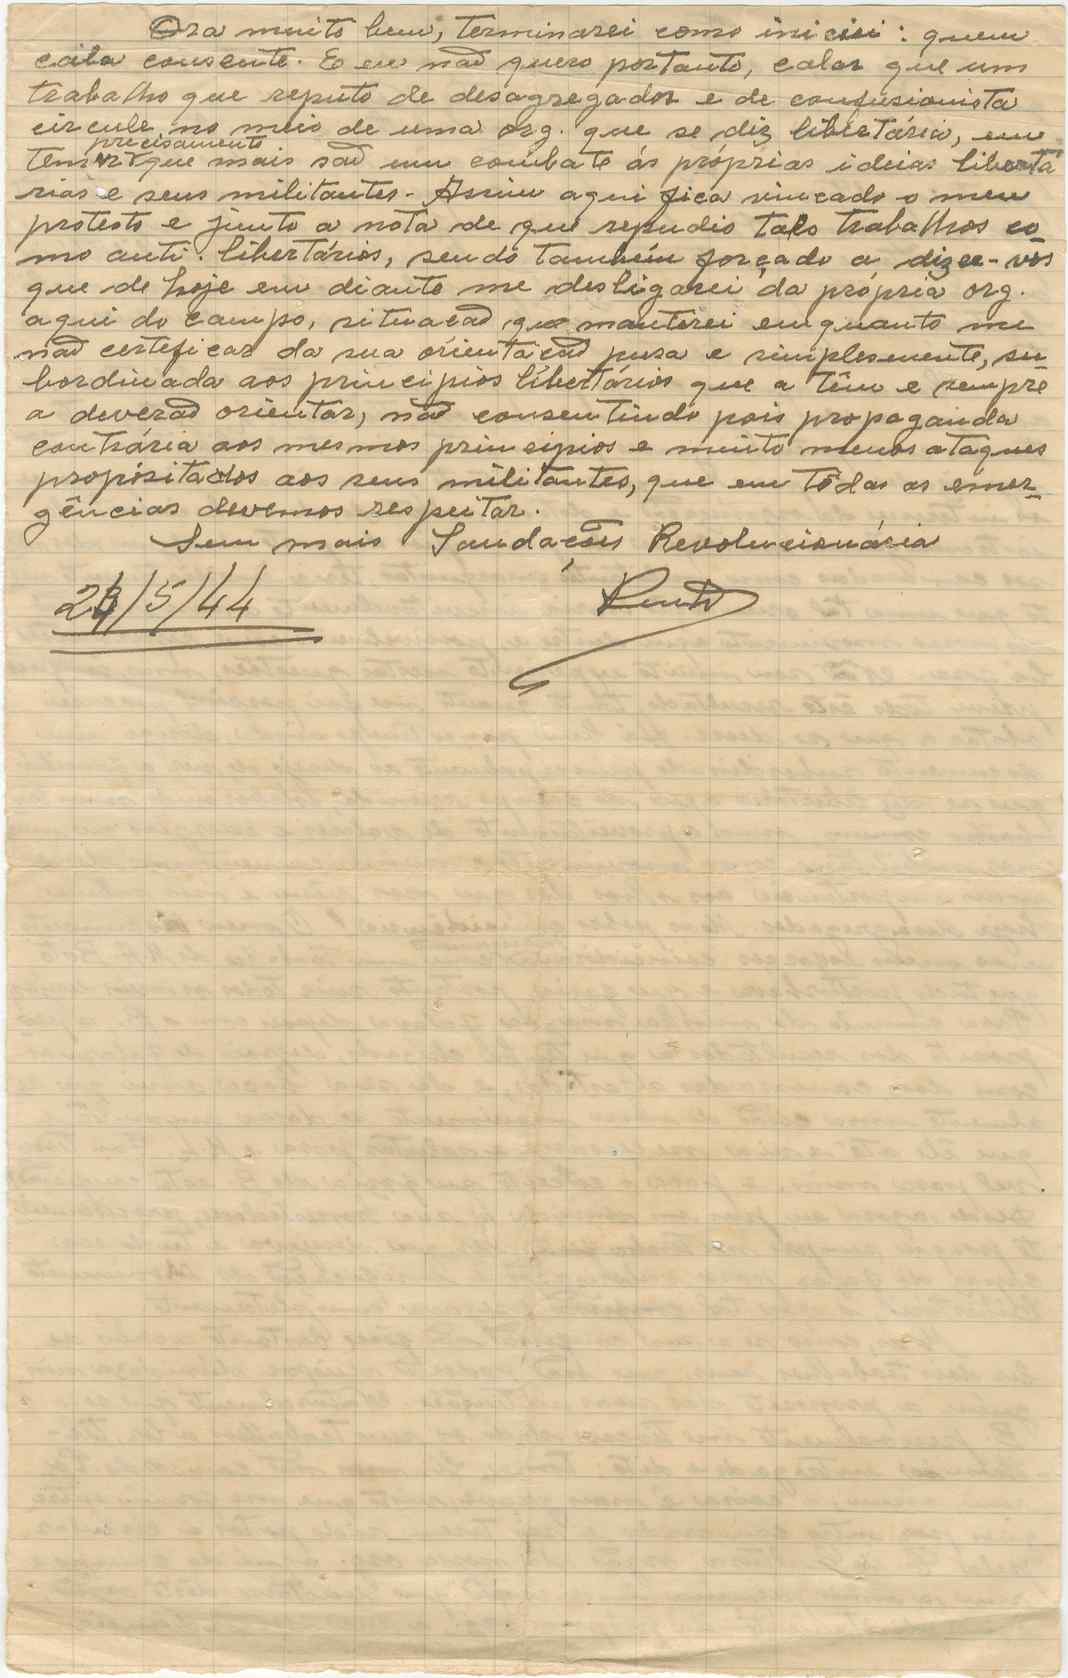 Ora muito bem, terminarei como iniciei: quem
cála consente. E eu não quero portanto, calar que um
trabalho que reputo de desagregador e de confusionista
circule, no meio de uma org. que se diz libertária, em
precisamente
temas que mais são um combate ás próprias ideias libertá
rias e seus militantes. Assim aqui fica vincado o meu
protesto e junto a nota de que repudio tais trabalhos co-
mo anti-libertários, sendo também forçado a dizer-vos
que de hoje em diante me desligarei da própria org.
aqui do campo, situação que manterei enquanto me
não certeficar da sua orientação pura e simplesmente, su-
bordinada aos principios libertários que a têm e sempre
a deverão orientar, não consentindo pois propaganda
contrária aos mesmos principios e muito menos ataques
propósitados aos seus militantes, que em tôdas as emer-
gências devemos respeitar.
Sem mais Saudações Revolucionária
/5/44